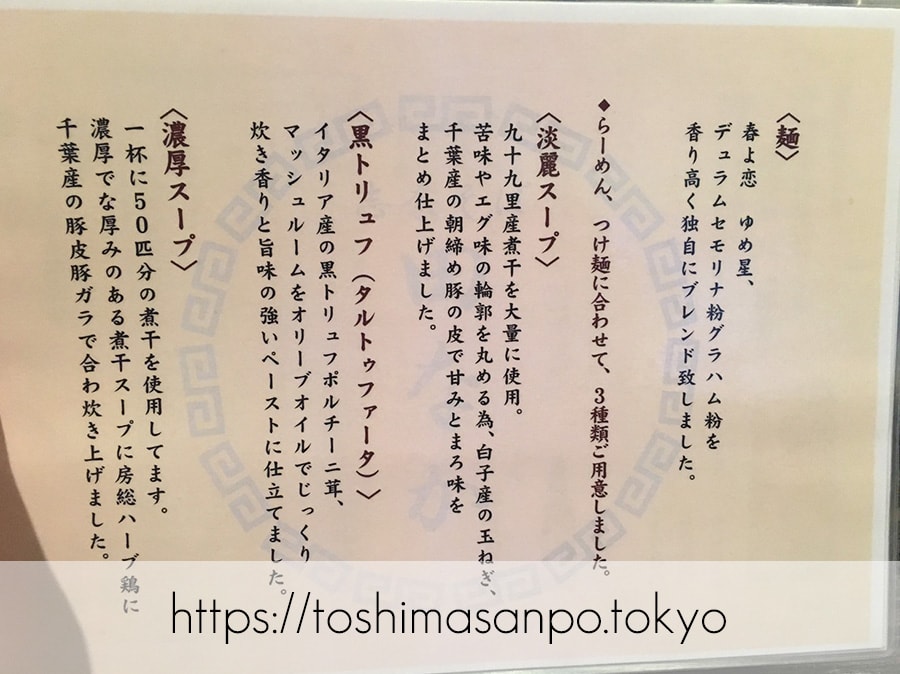 〈麺〉
春よ恋　ゆめ星、
デュラムセモリナ粉グラハム粉を
香り高く独自にブレンド致しました。
◆らーめん、つけ麺に合わせて、３種類ご用意しました。
〈淡麗スープ〉
九十九里産煮干を大量に使用。
苦味やエグ味の輪郭を丸める為、白子産の玉ねぎ、
千葉産の朝締め豚の皮で甘みとまろ味を
まとめ仕上げました。
〈黒トリュフ（タルトゥファータ）〉
イタリア産の黒トリュフポルチーニ茸、
マッシュルームをオリーブオイルでじっくり
炊き香りと旨味の強いペーストに仕立てました。
〈濃厚スープ〉
一杯に５０匹分の煮干を使用してます。
濃厚でな厚みのある煮干スープに房総ハーブ鶏に
千葉産の豚皮豚ガラで合わ炊き上げました。
https://toshimasanpo.tokyo